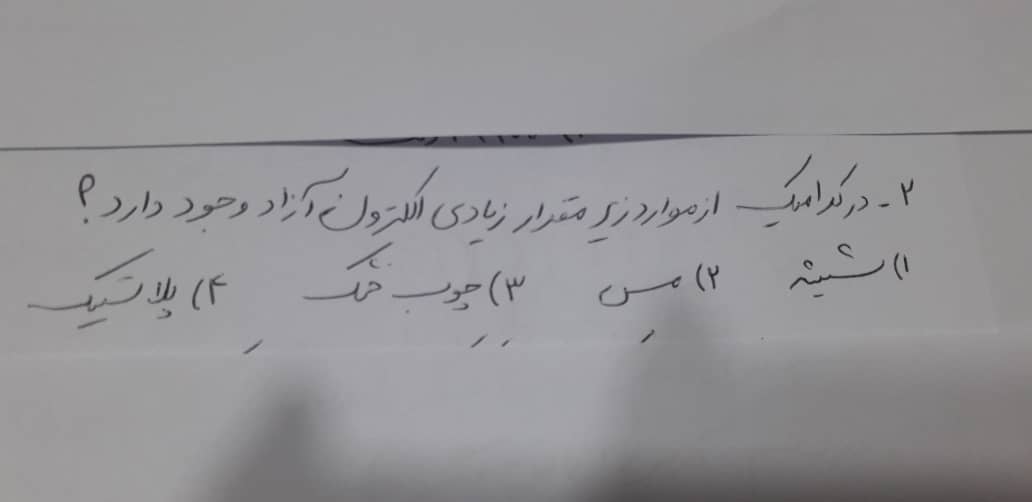 ۲- در کدامیک از موارد زیر مقدار زیادی الکترون آزاد وجود دارد؟
۱) شیشه ۲) مس ۳) چوب خشک ۴) پلاستیک